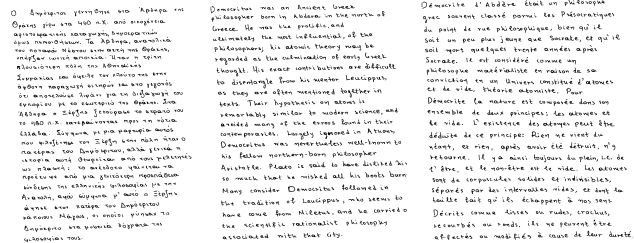 Ο Δημόκριτος γεννήθηκε στα Άβδηρα της
Θράκης γύρω στα 460 π.Χ. από οικογένεια
αριστοκρατικής καταγωγής, δημοκρατικών
όμως πεποιθήσεων. Τα Άβδηρα,
του ποταμού Νέστου στη
Η τρίτη
πλουσιότερη πόλη της Αθηναϊκής
Συμμαχίας και όφειλε τον πλούτο της στην
άφθονη παραγωγή σιταριού και στο γεγονός
ότι αποτελούσε λιμάνι για τη διεξαγωγή του
εμπορίου με το εσωτερικό της Θράκης. Στα
Άβδηρα ο Ξέρξης
το 480 π.Χ. κατεβαίνοντας προς τη νότια
Ελλάδα. Σύμφωνα με μια μαρτυρία αυτός
που φιλοξένησε τον Ξέρξη στην πόλη ήταν ο
πατέρας του Δημόκριτου, αλλά γενικά η
ιστορία αυτή θεωρείται από τους μελετητές
ως πλαστή·
της ελληνικής φιλοσοφίας με την
Ανατολή, αφού σύμφωνα μ' αυτό ο Ξέρξης
άφησε στον πατέρα του Δημόκριτου
κάποιους Μάγους, οι οποίοι μύησαν το
Δημόκριτο στα μυστικά δόγματα της
φιλοσοφίας τους.
Democritus was an Ancient Greek
philosopher born in Abdera in the north of
Greece. He was the prolific, and
ultimately the most influential, of the
philosophers; his atomic theory may be
regarded as the culmination of early Greek
thought. His exact contributions are difficult
to disentangle from his mentor Leucippus,
as they are often mentioned together in
texts. Their hypothesis on atoms is
remarkably similar to modern science, and
avoided many of the errors found in their
contemporaries. Largely ignored in Athens,
Democritus was nevertheless well-known to
his fellow northern-born philosopher
Aristotle. Plato is said to have disliked his
so much that he wished all his books burnt.
Many consider Democritus followed in
the tradition of Leucippus, who seems to
have come from Miletus, and he carried on
the scientific rationalist philosophy
associated with that city.
Démocrite d'Abdère était un philosophe
grec souvent classé parmi les Présocratiques
du point de vue philosophique, bien qu'il
soit un peu plus jeune que Socrate, et qu'il
soit mort quelques trente années après
Socrate. Il est considéré comme un
philosophe matérialiste en raison de sa
conviction en un Univers constitué d'atomes
et de vide, théorie atomiste. Pour
Démocrite la nature est composée dans son
ensemble de deux principes: les atomes et
le vide. L'existence des atomes peut être
déduite de ce principe: Rien ne vient du
néant, et rien, après avoir été détruit, n'y
retourne. Il y a ainsi toujours du plein, i.e. de
l'être, et le non-être est le vide. Les atomes
sont de corpuscules solides et indivisibles,
séparés par des intervalles vides, et dont la
taille fait qu'ils échappent à nos sens.
Décrits comme lisses ou rudes, crochus,
recourbés ou ronds, ils ne peuvent être
affectés ou modifiés à cause de leur dureté.